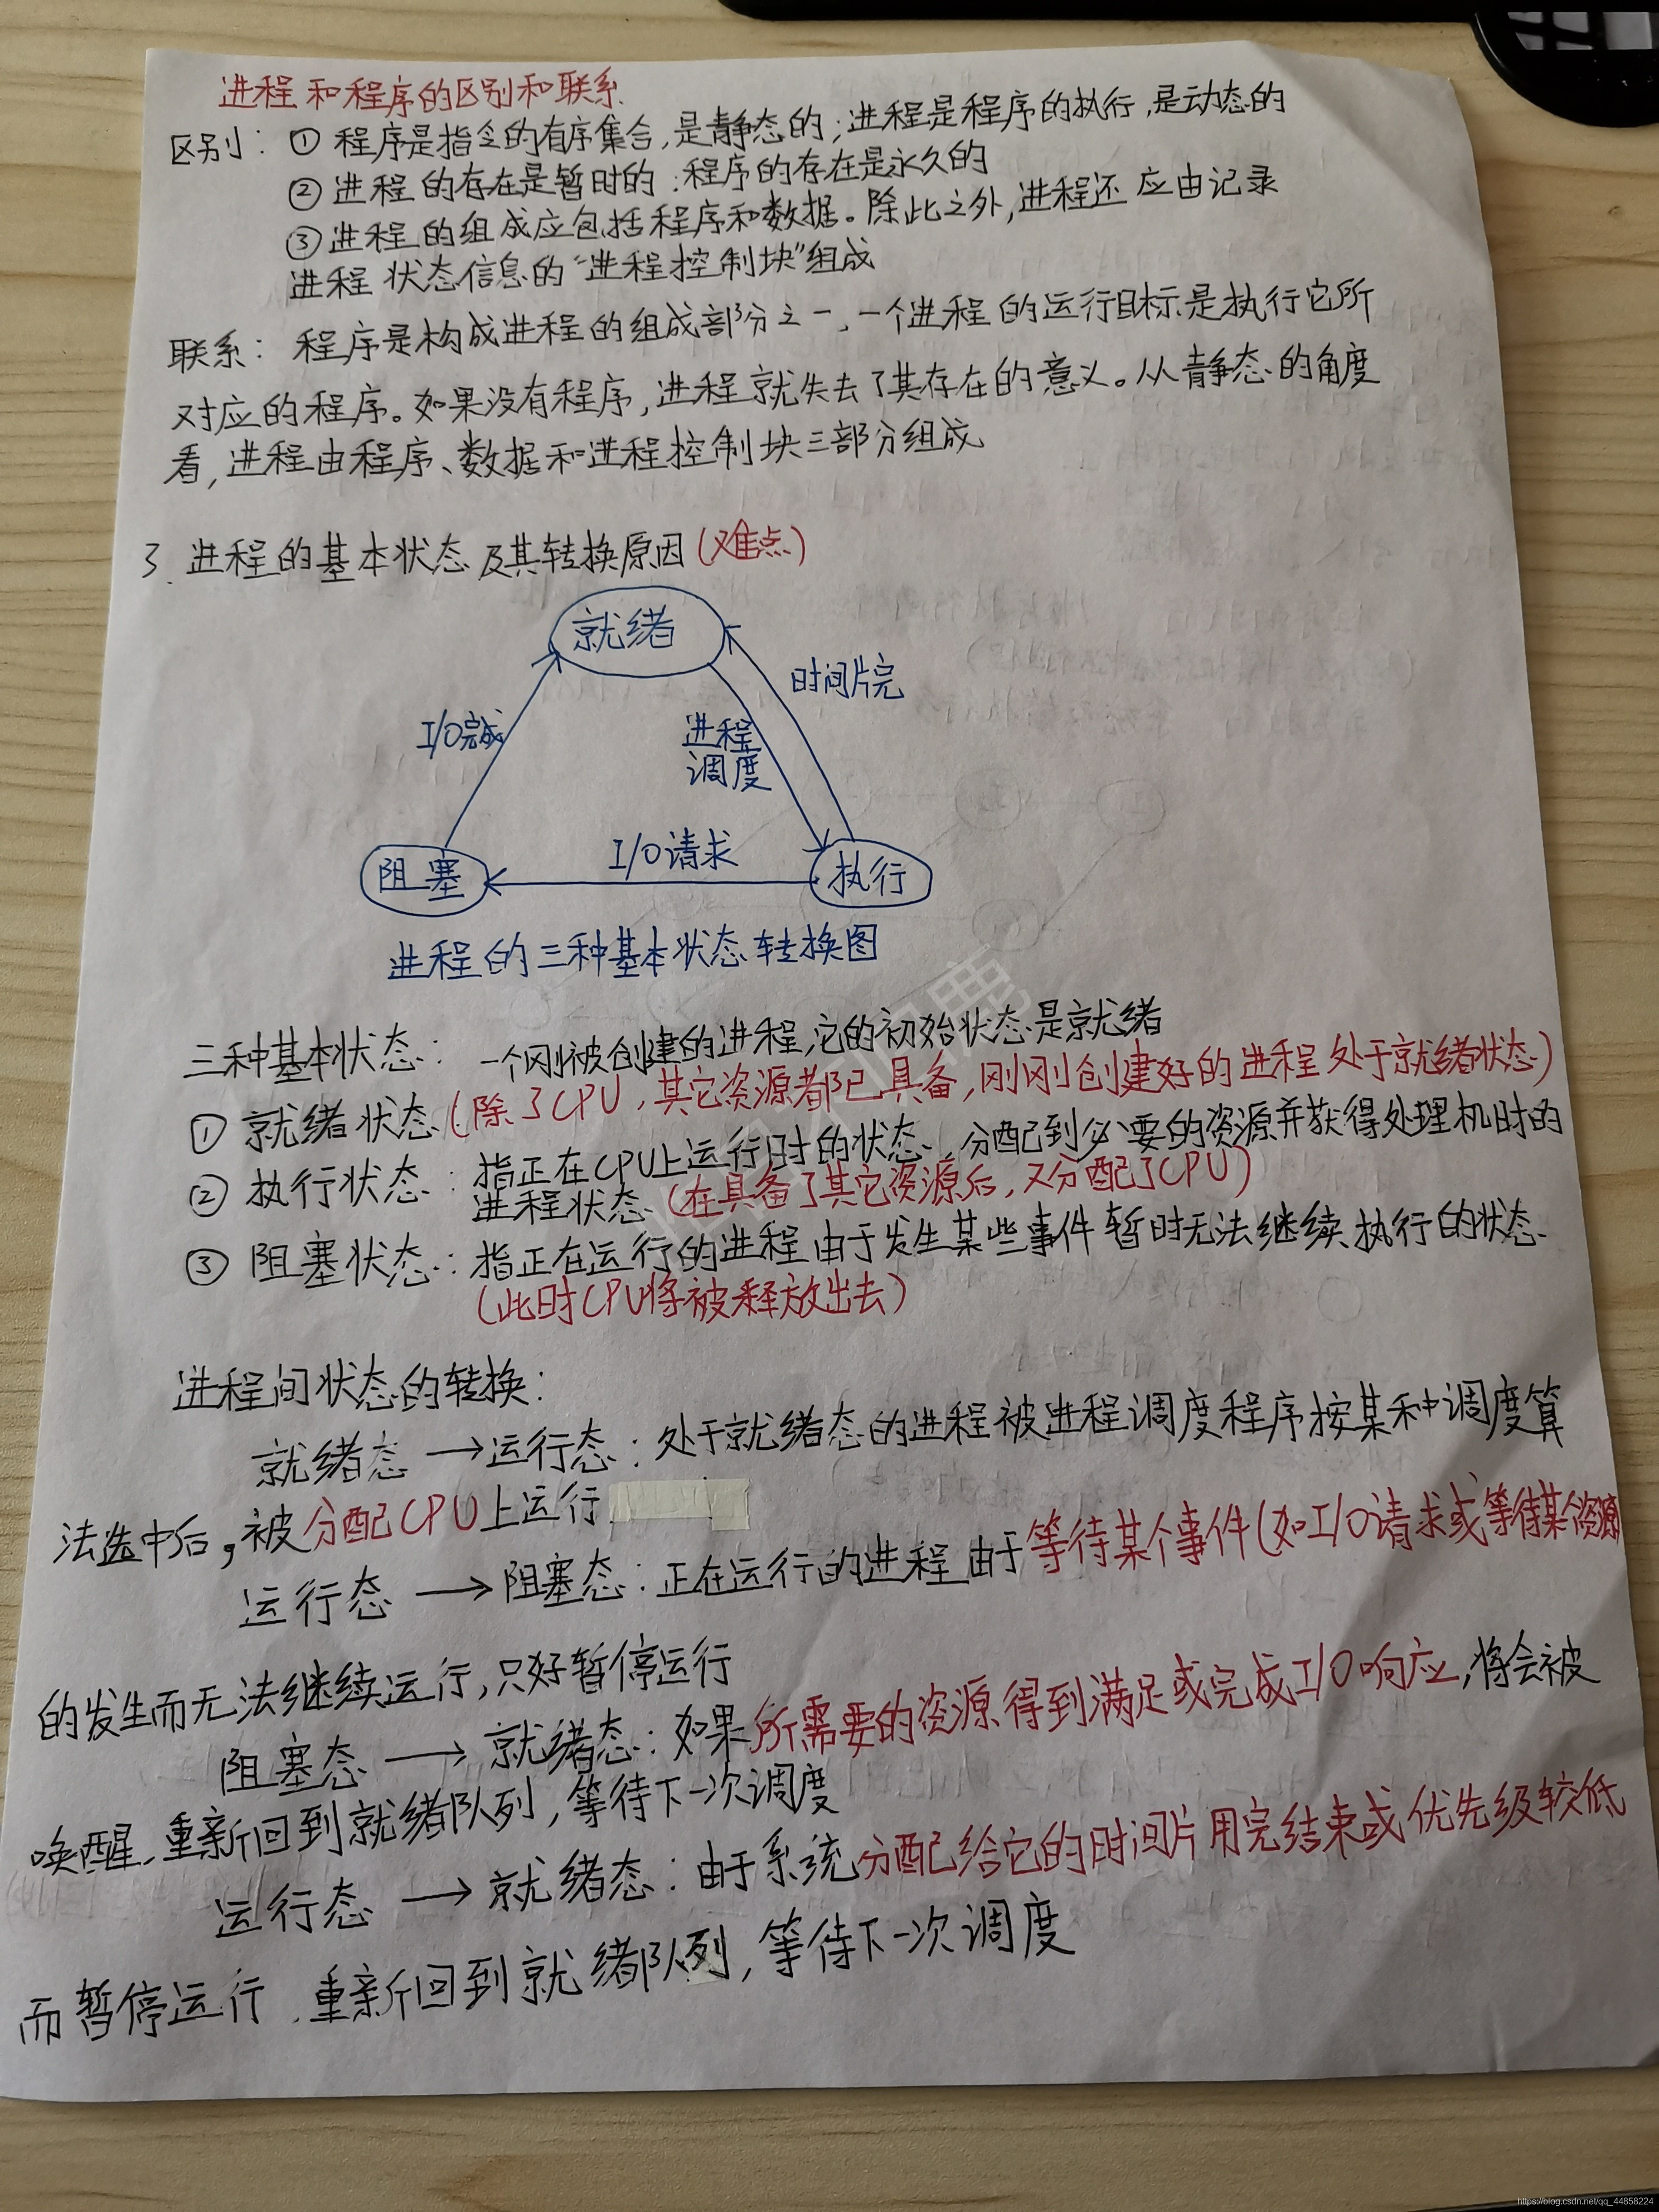 进程和程序的区别和联系
区别：① 程序是指令的有序集合，是静态的；进程是程序的执行，是动态的
② 进程的存在是暂时的；程序的存在是永久的
③ 进程的组成应包括程序和数据。除此之外，进程还应由记录
进程状态信息的“进程控制块”组成
联系：程序是构成进程的组成部分之一，一个进程的运行目标是执行它所
对应的程序。如果没有程序，进程就失去了其存在的意义。从静态的角度
看，进程由程序、数据和进程控制块三部分组成
3. 进程的基本状态及其转换原因（难点）
就绪
时间片完
I/O完成
进程
调度
I/O请求
阻塞
执行
进程的三种基本状态转换图
三种基本状态：一个刚被创建的进程，它的初始状态是就绪
① 就绪状态（除了CPU，其它资源都已具备，刚刚创建好的进程处于就绪状态）
② 执行状态：指正在CPU上运行时的状态，分配到必要的资源并获得处理机时的
进程状态（在具备了其它资源后，又分配了CPU）
③ 阻塞状态：指正在运行的进程由于发生某些事件暂时无法继续执行的状态
（此时CPU将被释放出去）
进程间状态的转换：
就绪态→运行态：处于就绪态的进程被进程调度程序按某种调度算
法选中后，被分配CPU上运行
运行态→阻塞态：正在运行的进程由于等待某个事件（如I/O请求或等待某个资源
的发生而无法继续运行，只好暂停运行
阻塞态→就绪态：如果所需要的资源得到满足或完成I/O响应，将会被
唤醒，重新回到就绪队列，等待下一次调度
运行态→就绪态：由于系统分配给它的时间片用完结束或优先级较低
而暂停运行，重新回到就绪队列，等待下一次调度
https://blog.csdn.net/qq_44858224